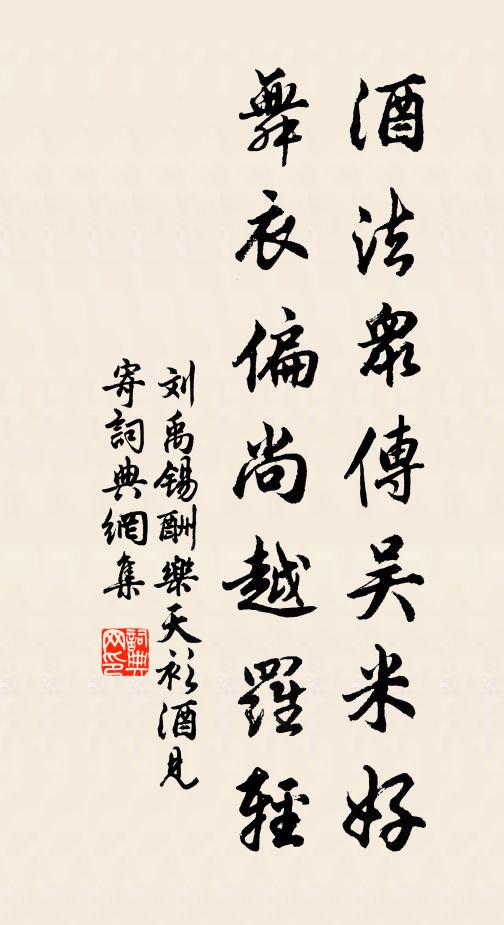 酒法衆傳吳米好
舞衣偏尚越羅輕
刘禹锡酬樂天衫酒見
寄詞典網集
詞典網印